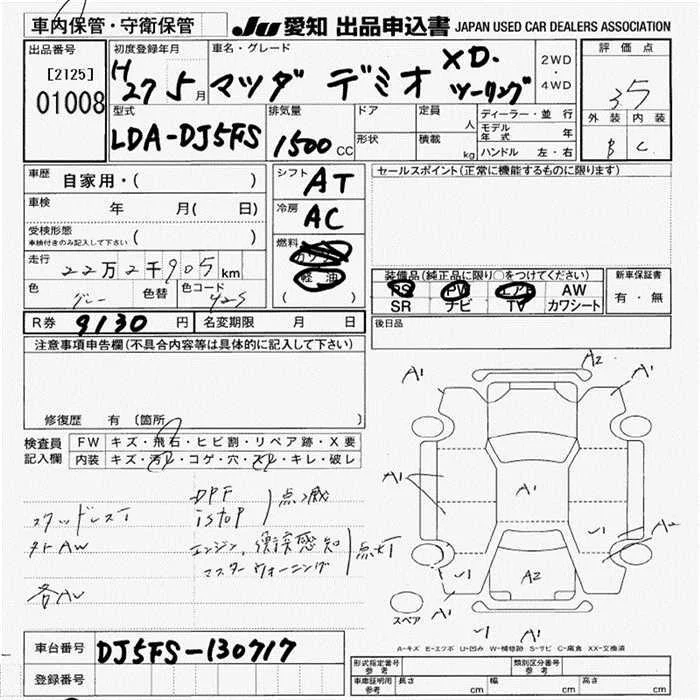 車内保管・守衛保管
JU 愛知 出品申込書 JAPAN USED CAR DEALERS ASSOCIATION
出品番号
[2125]
01008
初度登録年月
H27 5月
車名・グレード
マツダ デミオ XD. ツーリング
2WD・4WD
評価点
3.5
外装 内装
B C
型式
LDA-DJ5FS
排気量
1500 CC
ドア
形状
定員 人
積載 kg
ディーラー・並行
モデル年式 年
ハンドル 左・右
車歴 自家用・( )
車検 年 月( 日)
受検形態 ( )
車検付きのみ記入して下さい
走行 22万2千905km
色 グレー 色替 色コード 42S
R券 9130円 名変期限 月 日
シフト AT
冷房 AC
燃料
ガソリン
軽油
( )
セールスポイント(正常に機能するものに限ります)
装備品(純正品に限り○をつけてください)
PS PW エアB AW
SR ナビ TV カワシート
新車保証書
有・無
後日品
注意事項申告欄(不具合内容等は具体的に記入して下さい)
修復歴 有 〔箇所 〕
検査員記入欄
FW キズ・飛石・ヒビ割・リペア跡・X要
内装 キズ・汚レ・コゲ・穴・スレ・キレ・破レ
スタッドレス
DPF
istop
点滅
外AW
エンジン、衝突感知
マスターウォーニング
点灯
各AU
A1 A2 A1
A1 A1
A2
A2
A1 A1
スペア
A-キズ E-エクボ U-凹み W-補修跡 S-サビ C-腐食 XX-交換済
車台番号 DJ5FS-130717
登録番号
形式指定番号 参考
類別区分番号 参考
車庫証明用 参考 長さ cm 幅 cm 高さ cm